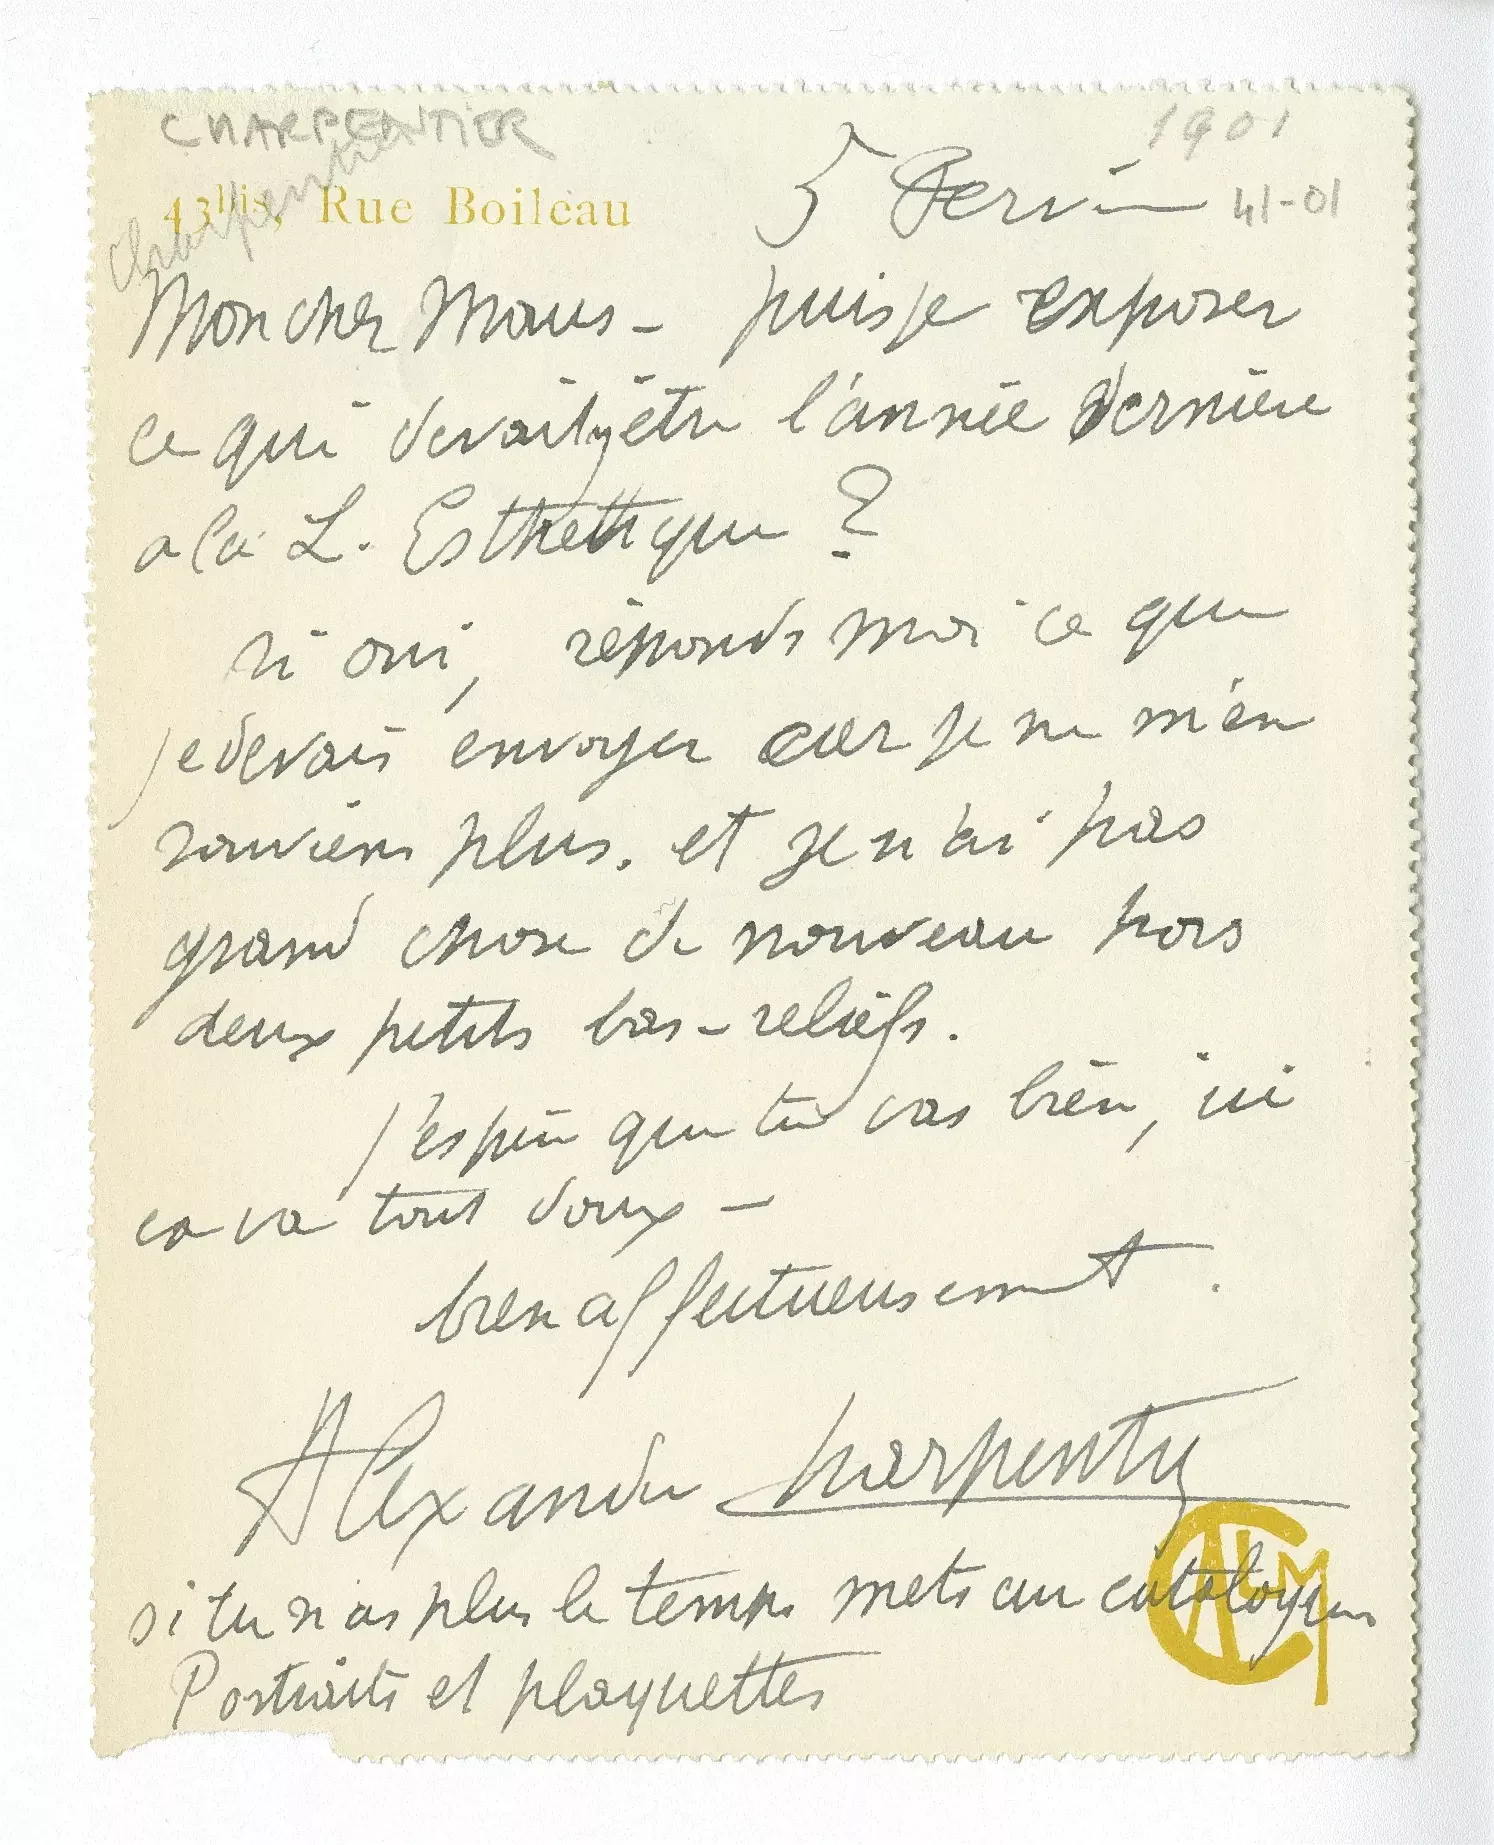 CHARPENTIER
1901
Charpentier
43bis, Rue Boileau
5 Fevri
41-01
Mon cher Maus – puis je exposer
ce qui devait y être l'année dernière
a la L. Esthétique ?
si oui, réponds moi ce que
je devais envoyer car je ne m'en
souviens plus. et je n'ai pas
grand chose de nouveau hors
deux petits bas-reliefs.
j'espère que tu vas bien, ici
ca va tout doux –
bien affectueusement.
Alexandre Charpentier
si tu n'as plus le temps mets au catalogue
Portraits et plaquettes